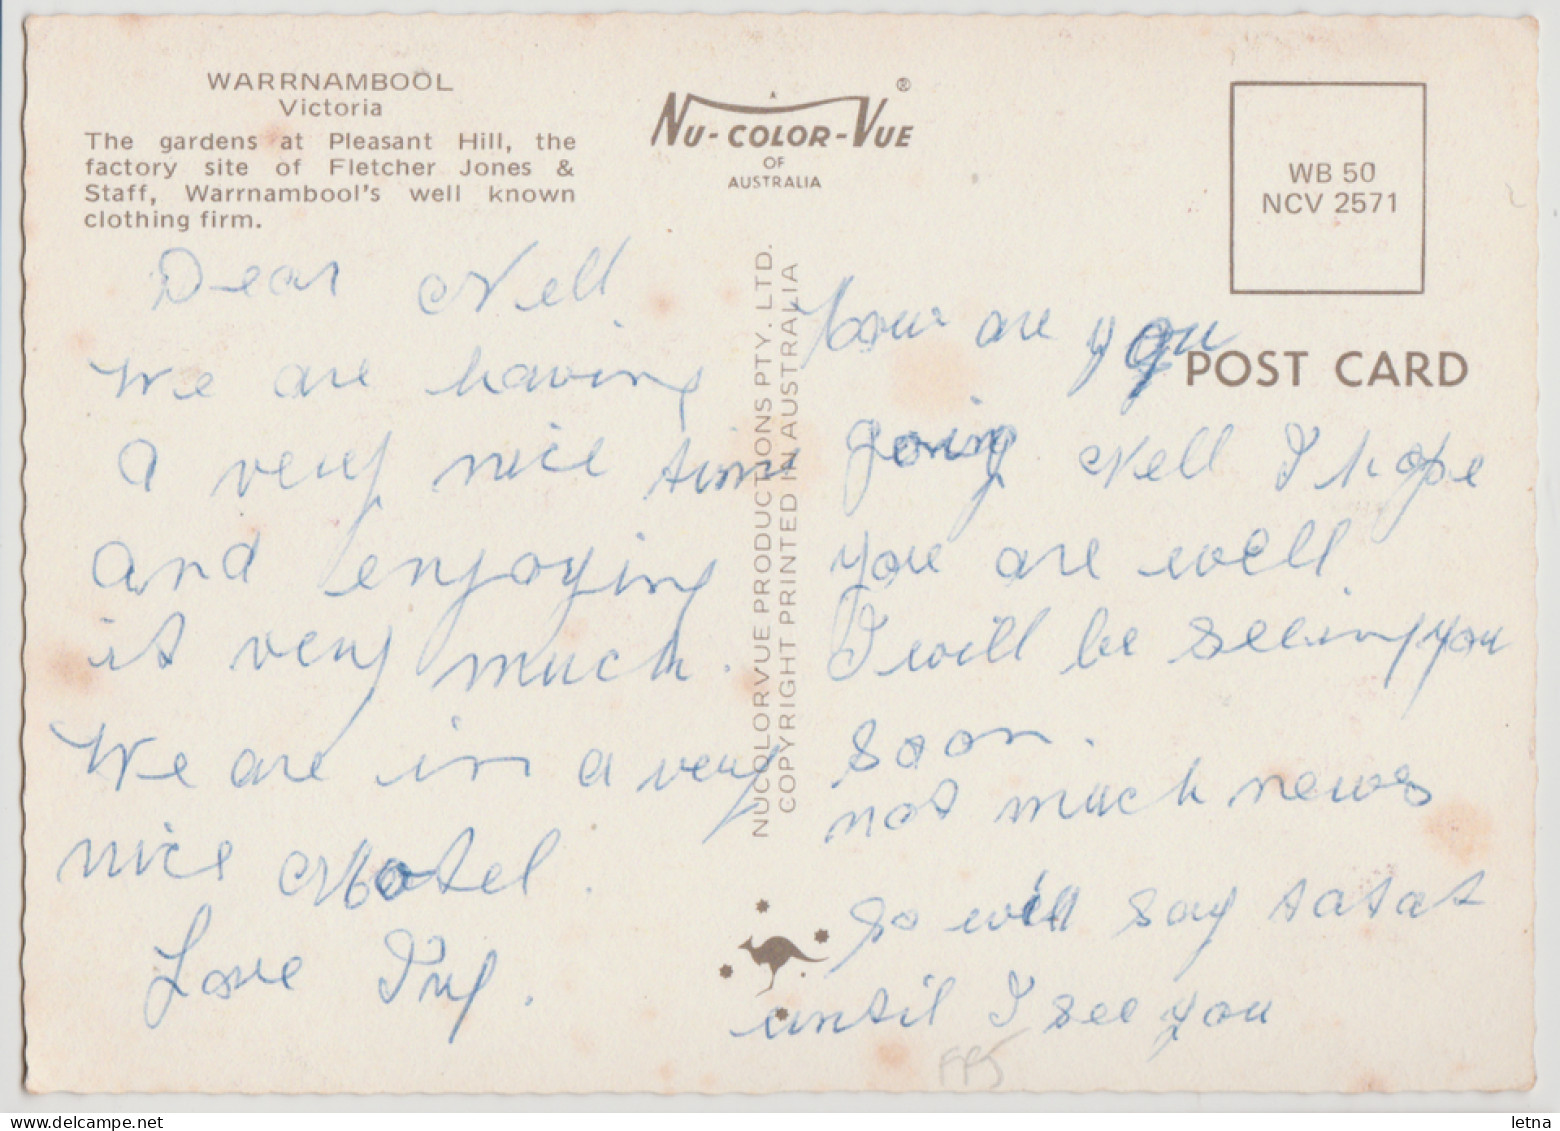 WARRNAMBOOL
Victoria
The gardens at Pleasant Hill, the
factory site of Fletcher Jones &
Staff, Warrnambool's well known
clothing firm.
NU-COLOR-VUE ®
OF
AUSTRALIA
WB 50
NCV 2571
POST CARD
NUCOLORVUE PRODUCTIONS PTY. LTD.
COPYRIGHT PRINTED IN AUSTRALIA
Dear Nell
We are having
a very nice time
and enjoying
it very much.
We are in a very
nice Motel.
Love
How are you
going Nell I hope
you are well
I will be seeing you
soon.
not much news
so will say tatat
until I see you
FPJ
www.delcampe.net
letna